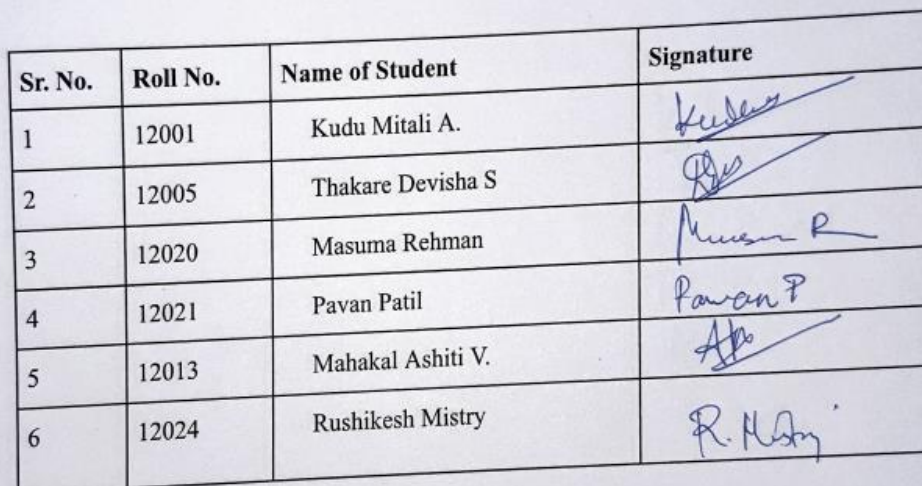 Sr. No. Roll No. Name of Student Signature
1 12001 Kudu Mitali A.
2 12005 Thakare Devisha S
3 12020 Masuma Rehman
4 12021 Pavan Patil Pawan P
5 12013 Mahakal Ashiti V.
6 12024 Rushikesh Mistry R. Mistry